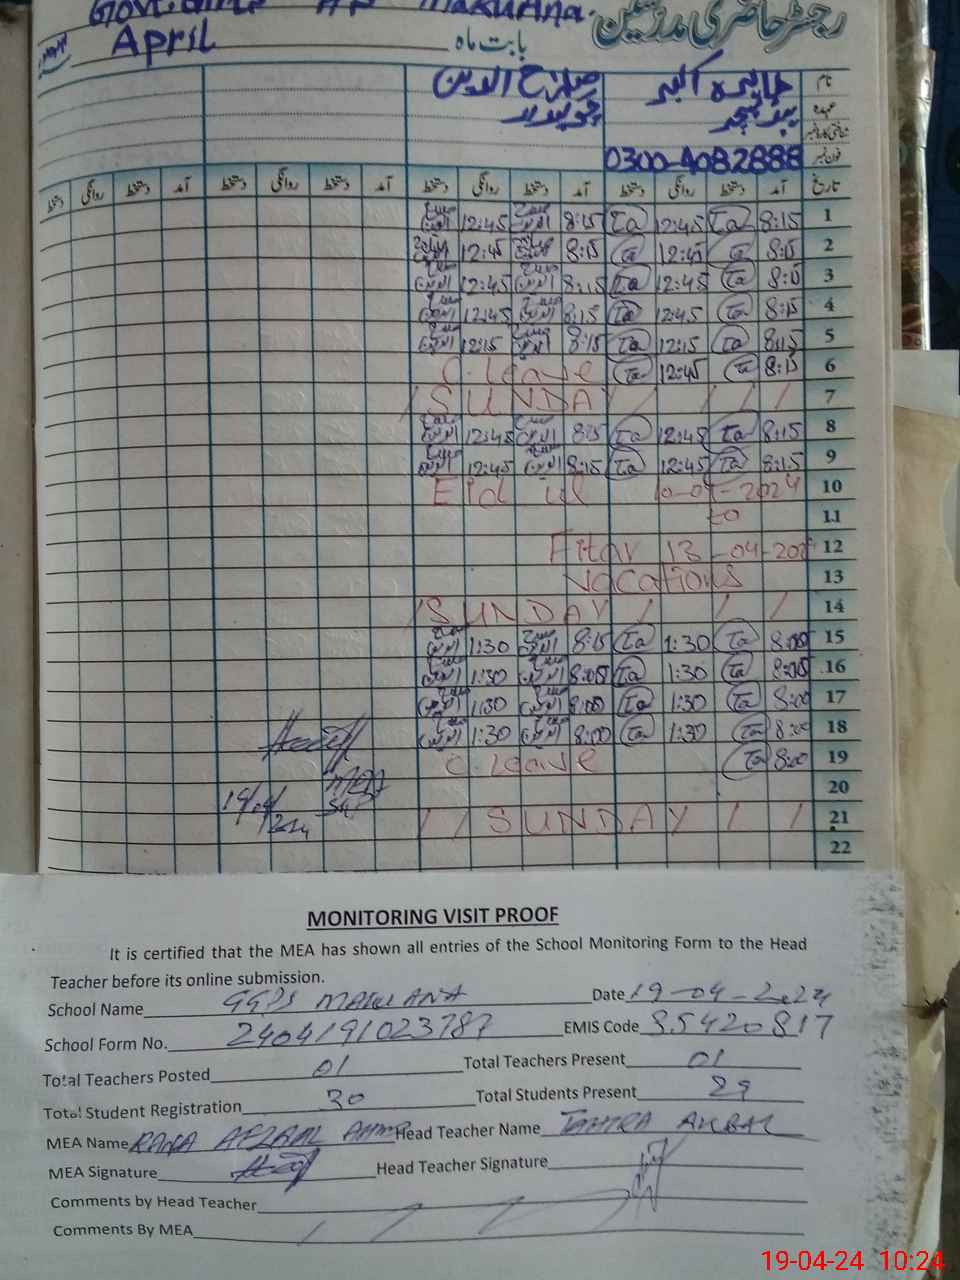 Govt. Girls P/S Makuana.
رجسٹر حاضری مدرسین
April بابت ماہ
نام طاہرہ اکبر صلاح الدین
عہدہ ہیڈ ٹیچر چوکیدار
شناختی کارڈ نمبر
فون نمبر 0300-4082888
تاریخ آمد دستخط روانگی دستخط آمد دستخط روانگی دستخط آمد دستخط روانگی دستخط آمد دستخط روانگی دستخط
1 8:15 Ta 12:45 Ta 8:15 صلاح الدین 12:45 صلاح الدین
2 8:15 Ta 12:45 Ta 8:15 صلاح الدین 12:45 صلاح الدین
3 8:15 Ta 12:45 Ta 8:15 صلاح الدین 12:45 صلاح الدین
4 8:15 Ta 12:45 Ta 8:15 صلاح الدین 12:45 صلاح الدین
5 8:15 Ta 12:15 Ta 8:15 صلاح الدین 12:15 صلاح الدین
6 8:15 Ta 12:45 Ta C.leave
7 / SUNDAY / / / /
8 8:15 Ta 12:45 Ta 8:15 صلاح الدین 12:45 صلاح الدین
9 8:15 Ta 12:45 Ta 8:15 صلاح الدین 12:45 صلاح الدین
Eid ul 10-04-2024 10
to 11
Fitar 13-04-202 12
Vacations 13
/ SUNDAY / / / 14
15 8:00 Ta 1:30 Ta 8:15 صلاح الدین 1:30 صلاح الدین
16 8:00 Ta 1:30 Ta 8:00 صلاح الدین 1:30 صلاح الدین
17 8:00 Ta 1:30 Ta 8:00 صلاح الدین 1:30 صلاح الدین
18 8:00 Ta 1:30 Ta 8:00 صلاح الدین 1:30 صلاح الدین
19 8:00 Ta C.leave
MEA 20
19/04/2024
/ / SUNDAY / / 21
22
MONITORING VISIT PROOF
It is certified that the MEA has shown all entries of the School Monitoring Form to the Head
Teacher before its online submission.
School Name GGPS MAKUANA Date 19-04-2024
School Form No. 2404191023787 EMIS Code 35420817
Total Teachers Posted 01 Total Teachers Present 01
Total Student Registration 30 Total Students Present 29
MEA Name RANA AFZAAL AHMAD Head Teacher Name TAHIRA AKBAR
MEA Signature Head Teacher Signature
Comments by Head Teacher
Comments By MEA
19-04-24 10:24